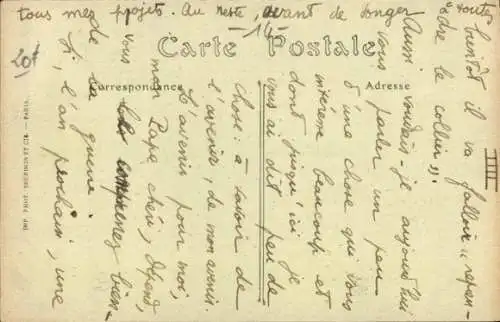 bientôt il va falloir « repren-
dre le collier ».
Aussi voudrais-je aujourd'hui
vous parler un peu
d'une chose qui vous
intéresse beaucoup et
dont jusqu'ici je
vous ai dit peu de
chose : à savoir de
l'avenir, de mon avenir.
L'avenir pour moi,
mon Papa chéri, dépend,
vous comprenez bien
de la guerre.
Si, l'an prochain, une
tous mes projets. Au reste, avant de songer
toutes
-14-
Carte Postale
Correspondance
Adresse
20f
IIII
IMP. PHOT. NEURDEIN ET CIE. — PARIS.